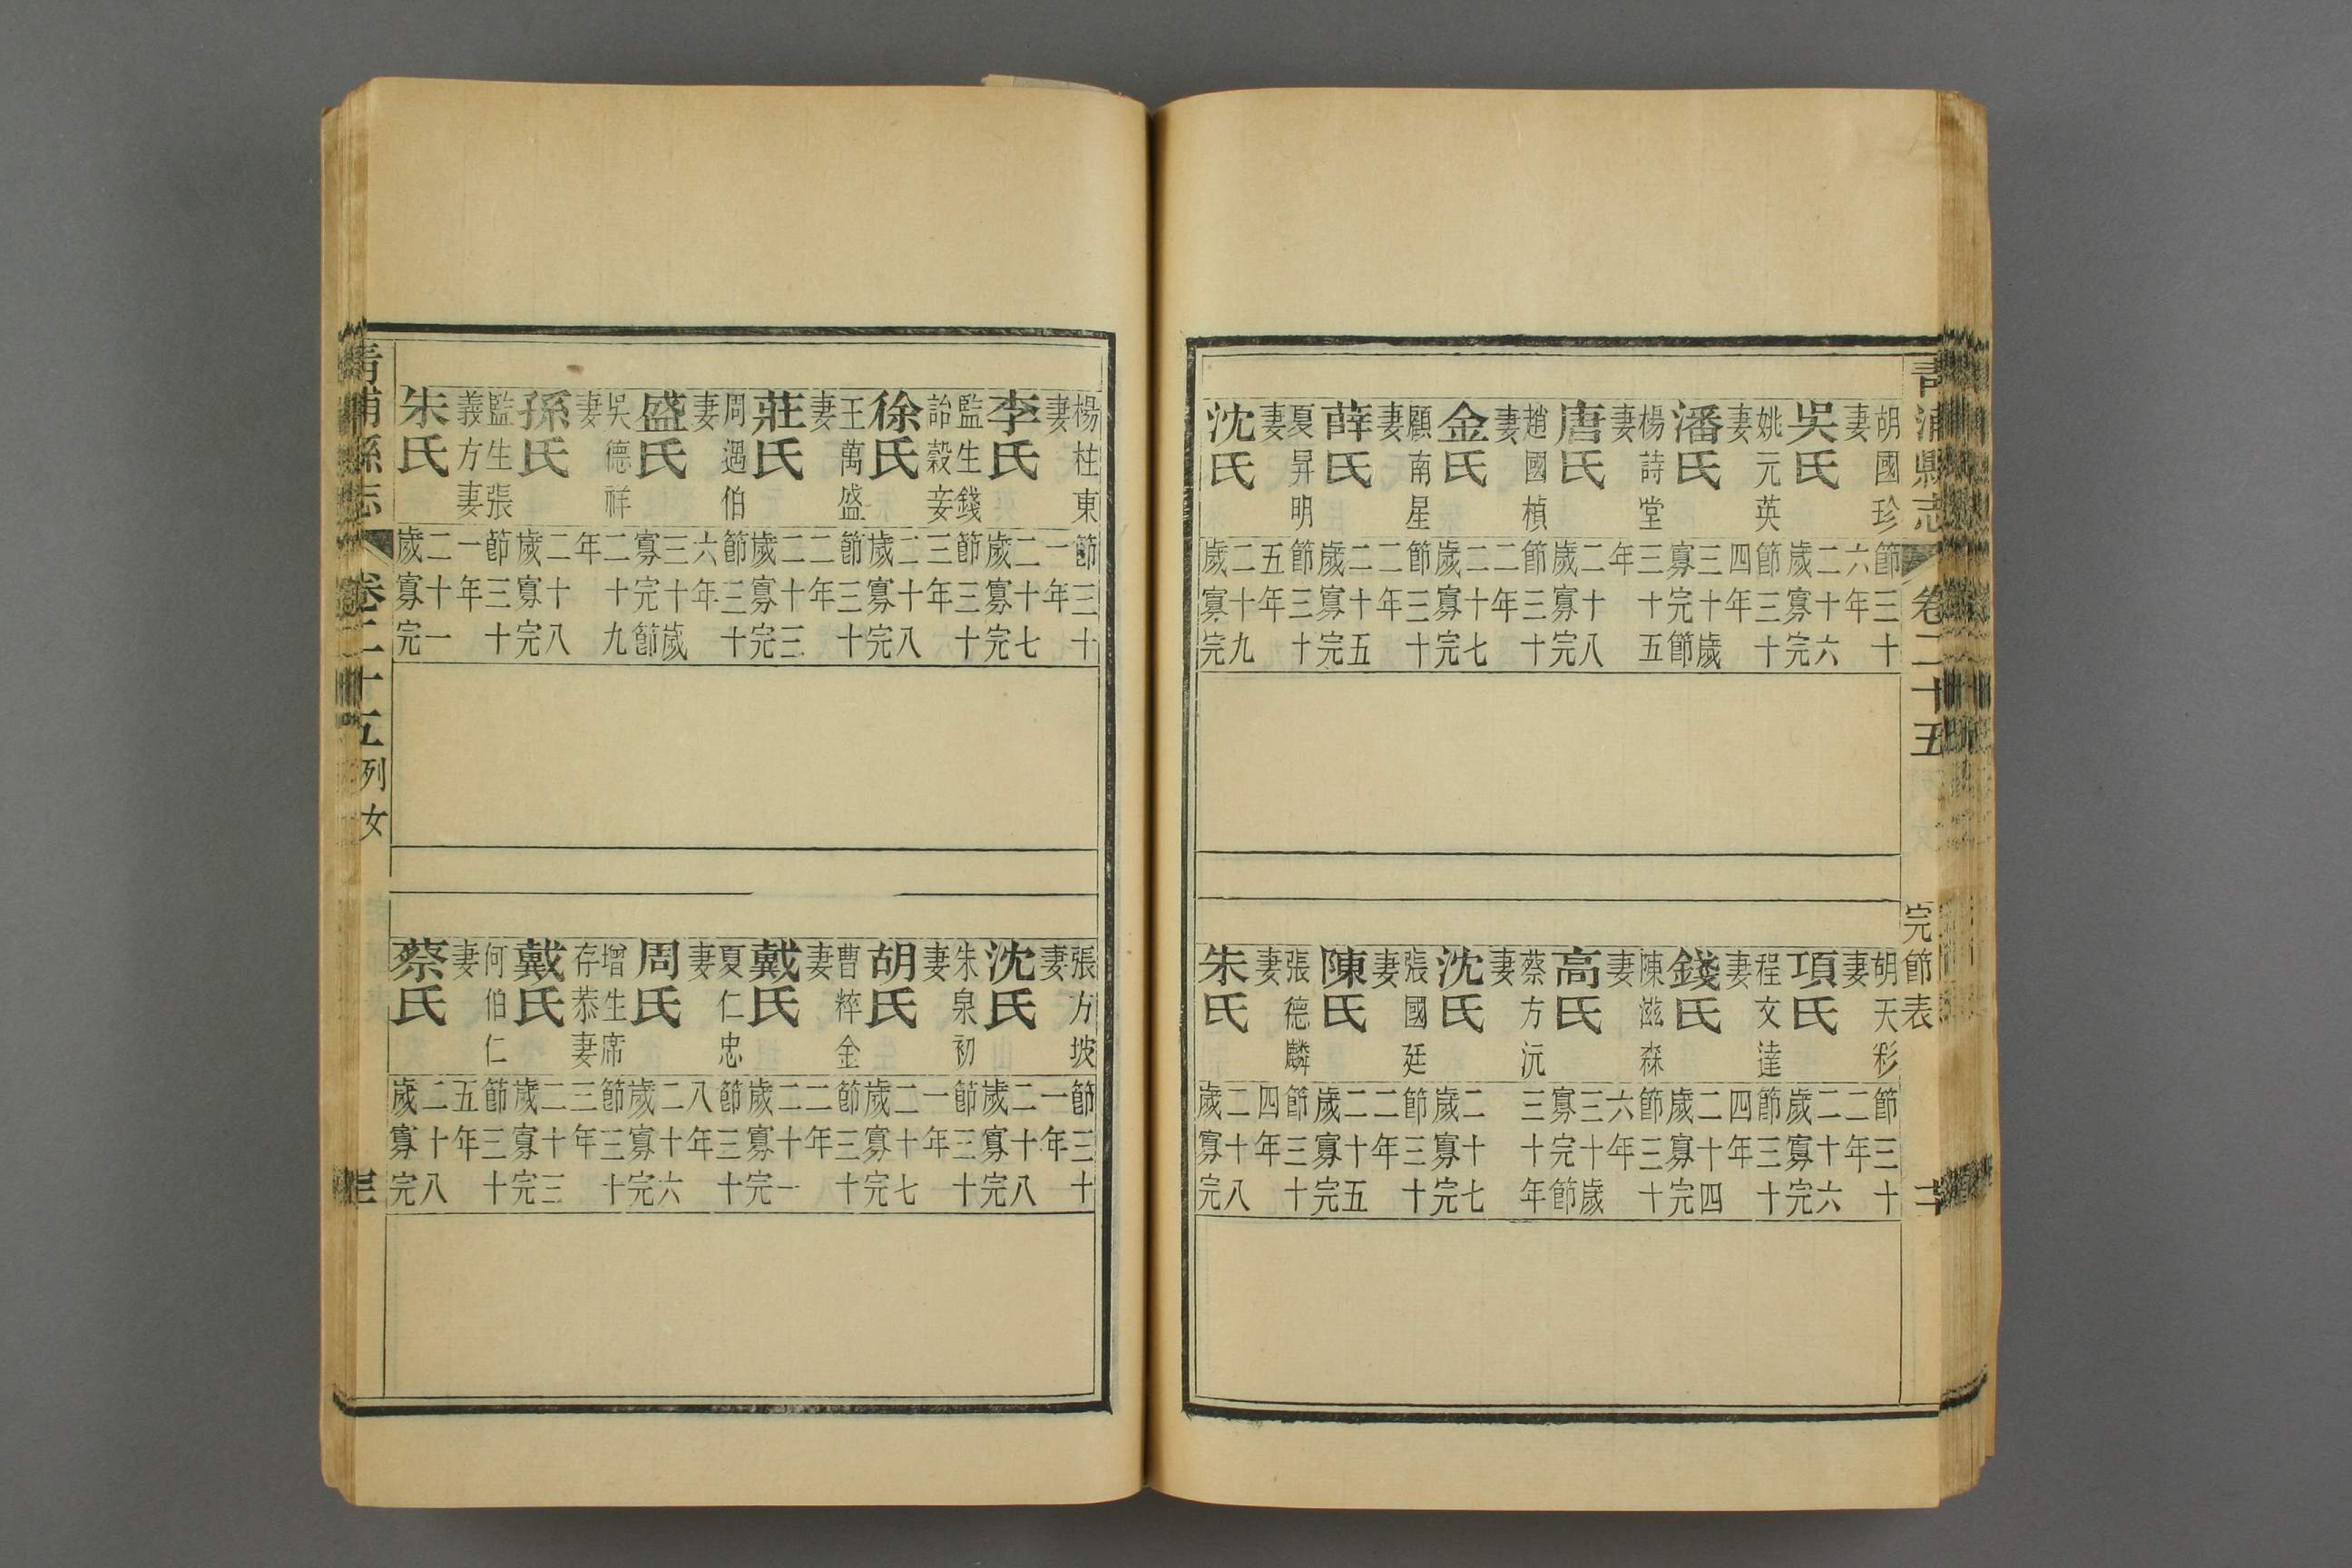 青浦縣志
卷二十五
完節表
二
胡國珍妻
節三十六年
吳氏 姚元英妻
二十六歲寡完節三十四年
潘氏 楊詩堂妻
三十歲寡完節三十五年
唐氏 趙國楨妻
二十八歲寡完節三十二年
金氏 顧南星妻
二十七歲寡完節三十二年
薛氏 夏昇明妻
二十五歲寡完節三十五年
沈氏
二十九歲寡完
胡天彩妻
節三十二年
項氏 程文達妻
二十六歲寡完節三十四年
錢氏 陳滋森妻
二十四歲寡完節三十六年
高氏 蔡方沅妻
三十歲寡完節三十年
沈氏 張國廷妻
二十七歲寡完節三十二年
陳氏 張德麟妻
二十五歲寡完節三十四年
朱氏
二十八歲寡完
楊柱東妻
節三十一年
李氏 監生錢詒穀妾
二十七歲寡完節三十三年
徐氏 王萬盛妻
二十八歲寡完節三十二年
莊氏 周遇伯妻
二十三歲寡完節三十六年
盛氏 吳德祥妻
三十歲寡完節二十九年
孫氏 監生張義方妻
二十八歲寡完節三十一年
朱氏
二十一歲寡完
張方坡妻
節三十一年
沈氏 朱泉初妻
二十八歲寡完節三十一年
胡氏 曹粹金妻
二十七歲寡完節三十二年
戴氏 夏仁忠妻
二十一歲寡完節三十八年
周氏 增生席存恭妻
二十六歲寡完節三十三年
戴氏 何伯仁妻
二十三歲寡完節三十五年
蔡氏
二十八歲寡完
青浦縣志
卷二十五
列女